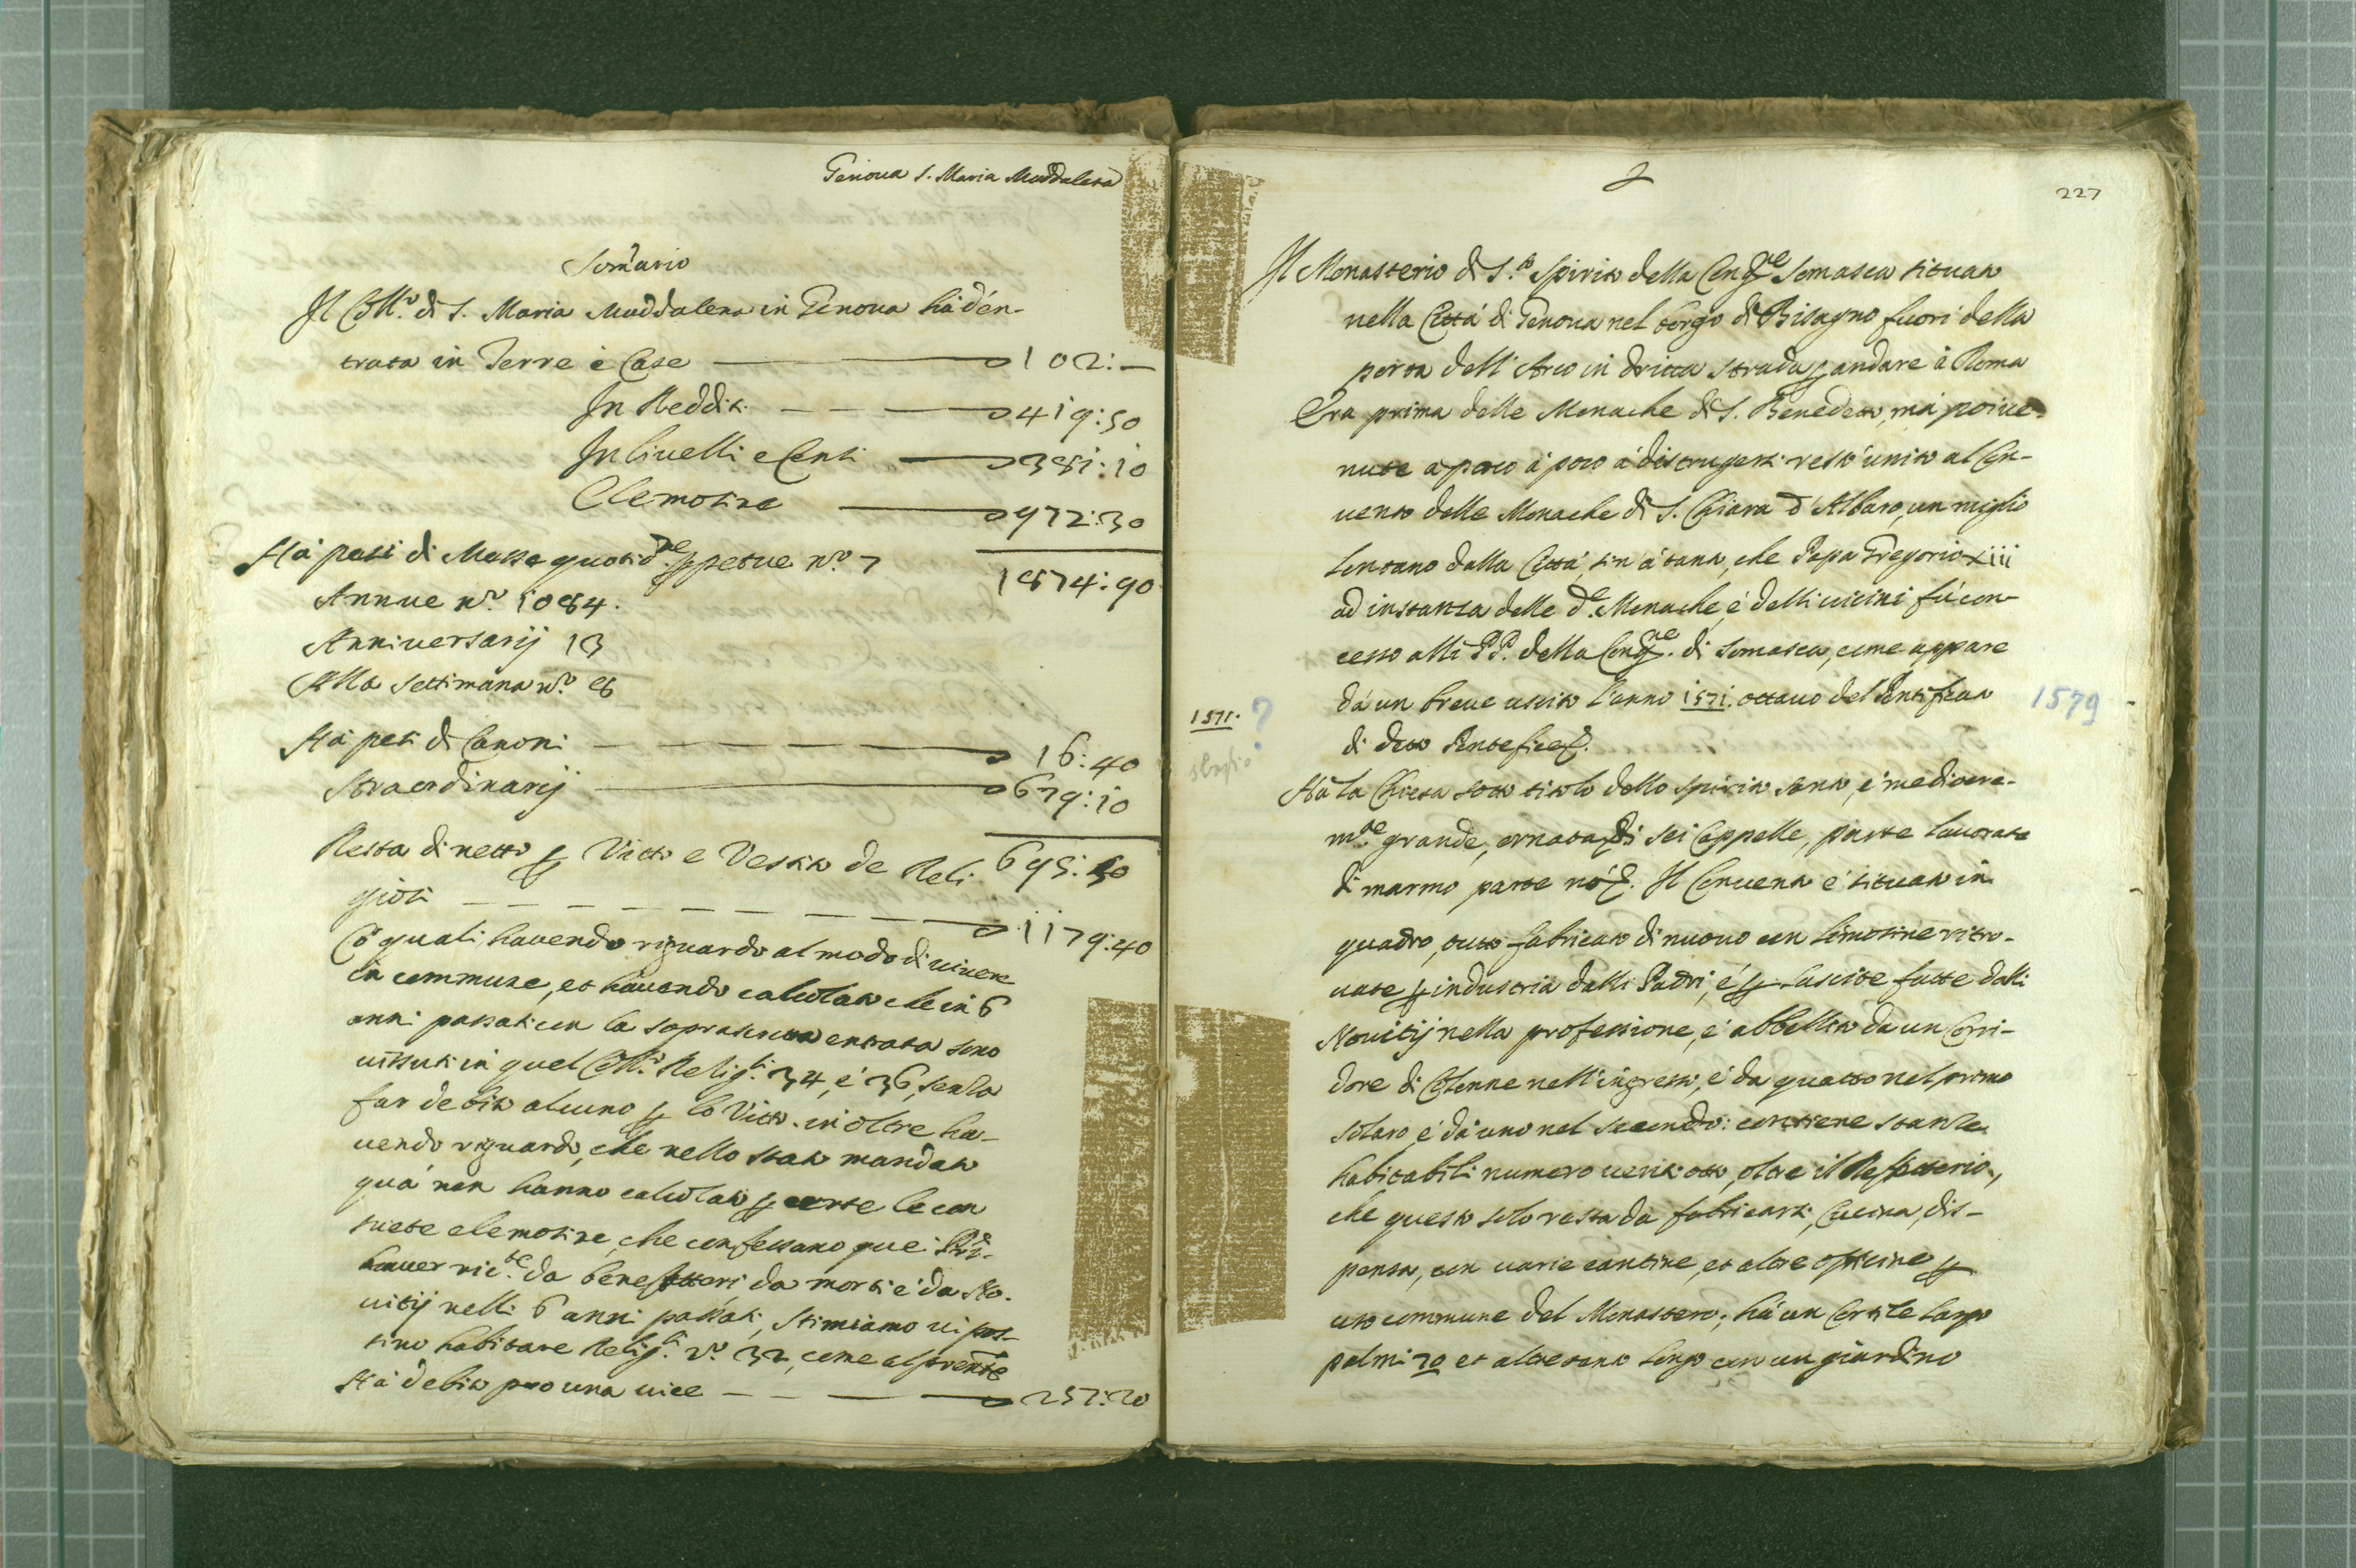 Genova S. Maria Maddalena
Som̃ario
Il Coll.º di S. Maria Maddalena in Genova hà d'en-
trata in Terre è Case 102:—
In Redditi 419:50
In livelli e Censi 381:10
Elemosine 972:30
1874:90
Hà pesi di Messe quotid.ne ꝑpetue n.º 7
Annue n.º 1084.
Anniversarij 13
Alla settimana n.º
Hà pesi di Canoni 16:40
Straordinarij 679:10
695:50
Resta di netto ꝑ Vitto e Vestito de Reli-
giosi 1179:40
Cõ quali, havendo riguardo al modo di vivere
in commune, et havendo calcolato che in 6
anni passati con la soprascritta entrata sono
vissuti in quel Coll.º Relig.si 34, è 36, senza
far debito alcuno ꝑ lo Vitto. in oltre ha-
vendo riguardo, che nello stato mandato
quà non hanno calcolato ꝑ certe le con
suete elemosine, che confessano quei
haver ric.te da benefattori da morti è da No-
vitij nelli 6 anni passati, stimiamo vi pos-
sino habitare Relig.si n.º 32, come al prente
Hà debito pro una vice 257:20
227
Il Monasterio di S.to Spirito della Congne Somasca situato
nella Città di Genova nel borgo di Bisagno fuori della
porta dell'Arco in dritta strada ꝑ andare à Roma
Era prima delle Monache di S. Benedetto, mà poi ve-
nute a poco à poco à distrugersi restò unito al Con-
vento delle Monache di S. Chiara d'Albaro, un miglio
lontano dalla Città, sin à tanto, che Papa Gregorio xiii
ad instanza delle d.e Monache, è delli vicini fù con-
cesso alli PP. della Cong.ne di Somasca, come appare
dà un breve uscito l'anno 1571. ottavo del Pontificato 1579
1571. ?
di detto Pontefice.
Hà la Chiesa sotto titolo dello Spirito santo, è mediocre-
m.te grande, ornata di sei Cappelle, parte lavorate
di marmo parte nò. Il Convento è situato in
quadro, tutto fabricato di nuovo con limosine ritro-
vate ꝑ industria dalli Padri, è ꝑ lascite fatte dalli
Novitij nella professione, è abbellito da un Corri-
dore di Colonne nell'ingresso, è da quatto nel primo
solaro è dà uno nel secondo: contiene stanze
habitabili numero vent'otto, oltre il Refettorio,
che questo solo resta da fabricarsi, Cucina, dis-
pensa, con varie cantine, et altre officine ꝑ
uso commune del Monastero; hà un Cortile largo
palmi 70 et altretanto longo con un giardino